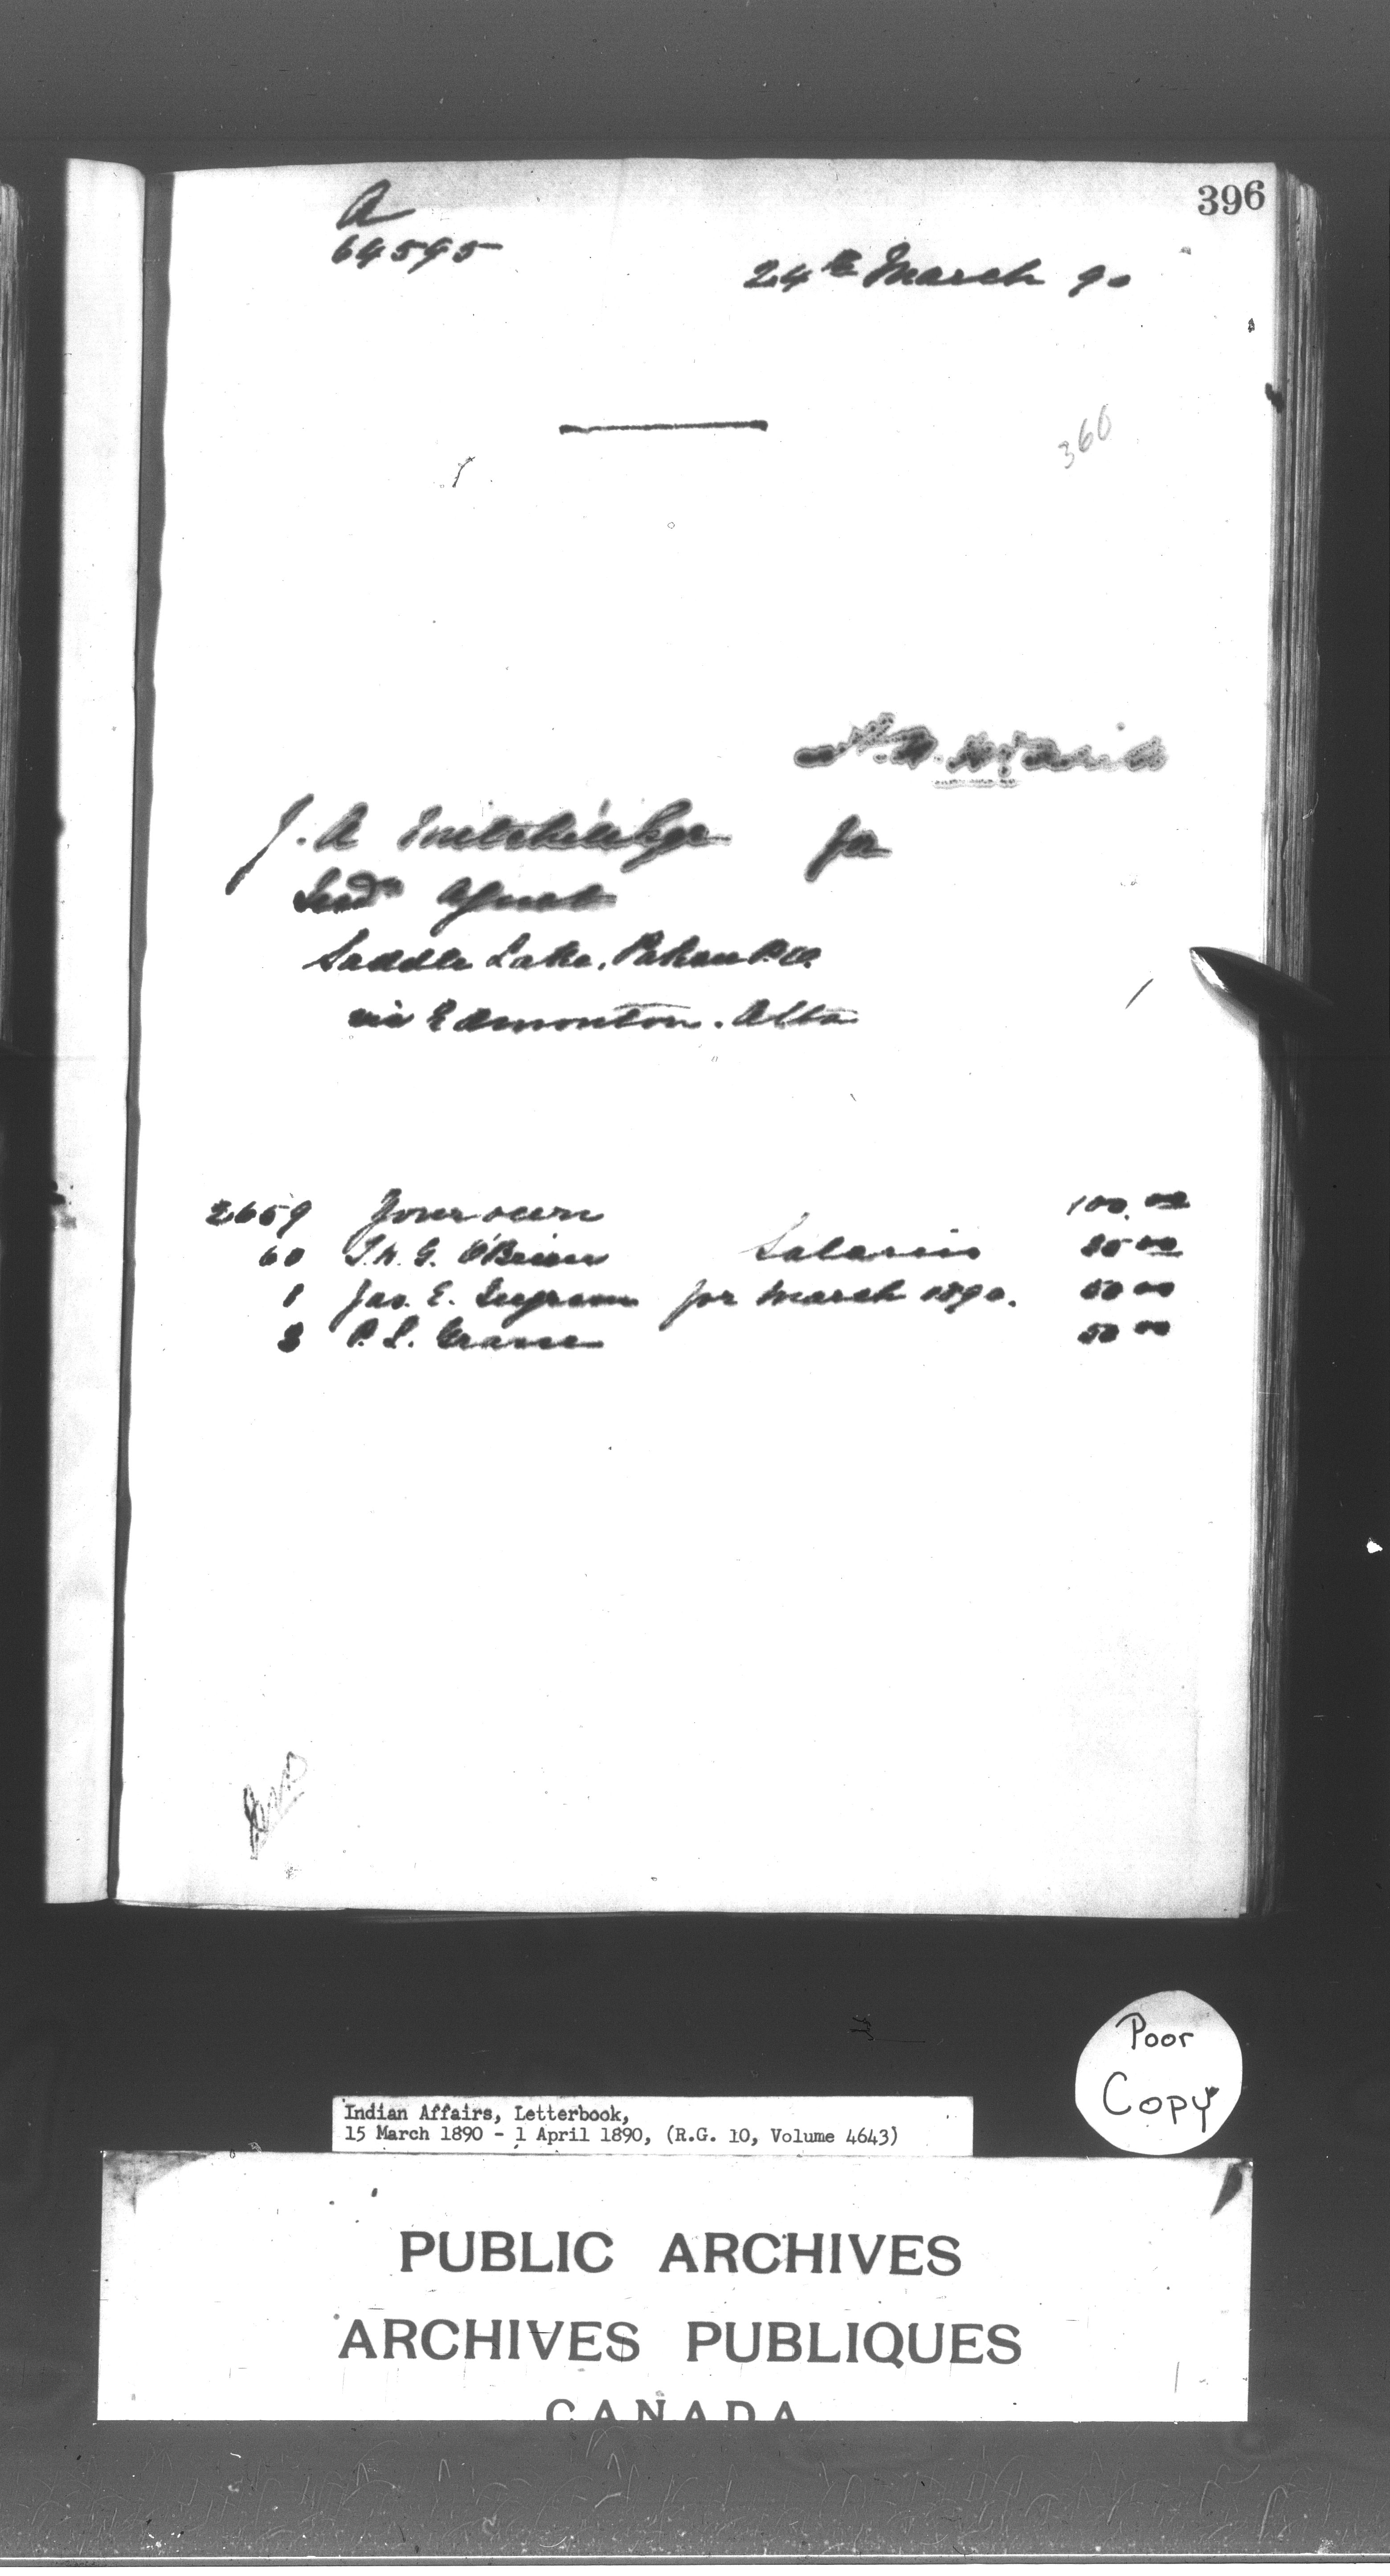 396
A
64595
24th March 90
360
J. A Mitchell Esqr
Indn Agent
Saddle Lake. Pakan P.O.
via Edmonton. Alta
2659 Your own 100.00
60 O'Brien Salaries 00
1 Jas. E. Ingram for March 1890. 50 00
P. L. 50 00
Poor
Copy
Indian Affairs, Letterbook,
15 March 1890 - 1 April 1890, (R.G. 10, Volume 4643)
PUBLIC ARCHIVES
ARCHIVES PUBLIQUES
CANADA